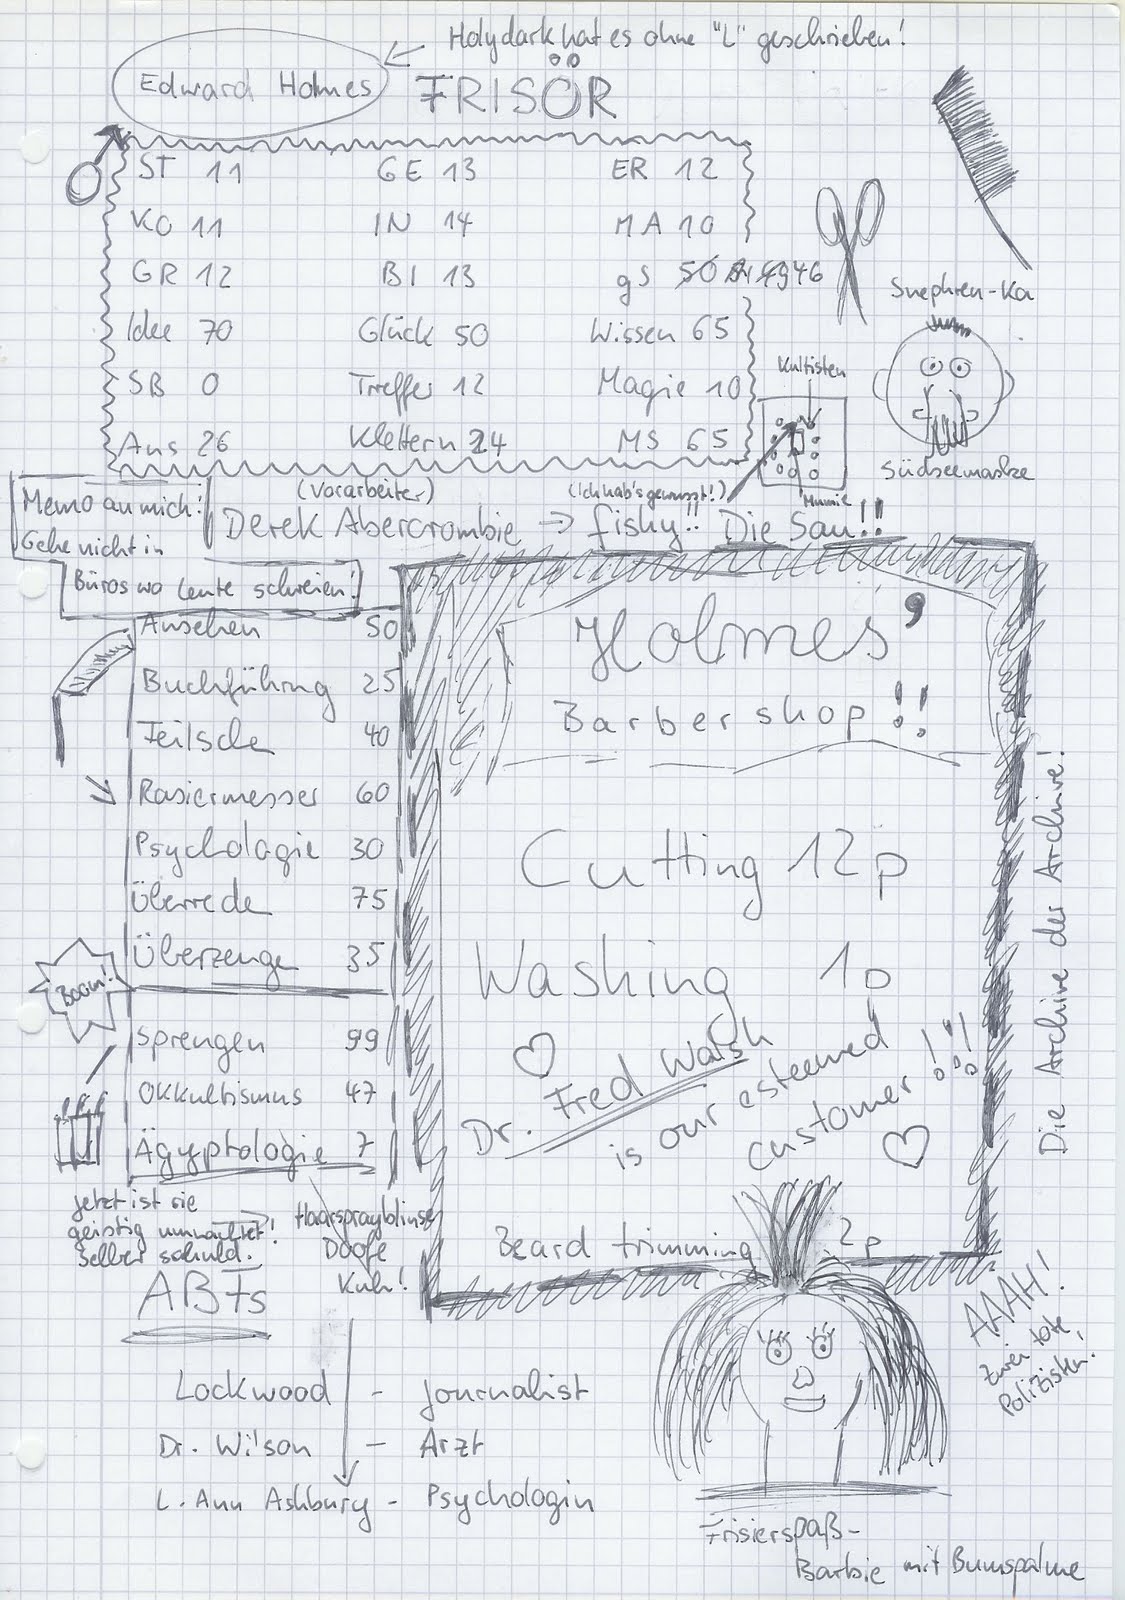 Holydark hat es ohne "L" geschrieben!
Edward Holmes
FRISÖR
ST 11 GE 13 ER 12
KO 11 IN 14 MA 10
GR 12 BI 13 gS 50 46
Idee 70 Glück 50 Wissen 65
SB 0 Treffer 12 Magie 10
Aus 26 Klettern 24 MS 65
Snephren-Ka
Kultisten
Mumie
Südseemaske
Memo an mich!
Gehe nicht in
Büros wo Leute schreien!
(Vorarbeiter) (Ich hab's gewusst!)
Derek Abercrombie → fishy!! Die Sau!!
Ansehen 50
Buchführung 25
Feilsche 40
Rasiermesser 60
Psychologie 30
Überrede 75
Überzeuge 35
Boom!
Sprengen 99
Okkultismus 47
Ägyptologie 7
Holmes'
Barbershop!!
Cutting 12p
Washing 1p
Dr. Fred Walsh
is our esteemed
customer!!!
Beard trimming 2p
Die Archive der Archive!
Jetzt ist sie
geistig umnachtet!
Selber schuld.
Haarsprayblinse
Doofe
Kuh!
ABFs
Lockwood - Journalist
Dr. Wilson - Arzt
L. Ann Ashbury - Psychologin
AAAH!
Zwei tote
Polizisten!
Frisierspaß-
Barbie mit Bumspalme